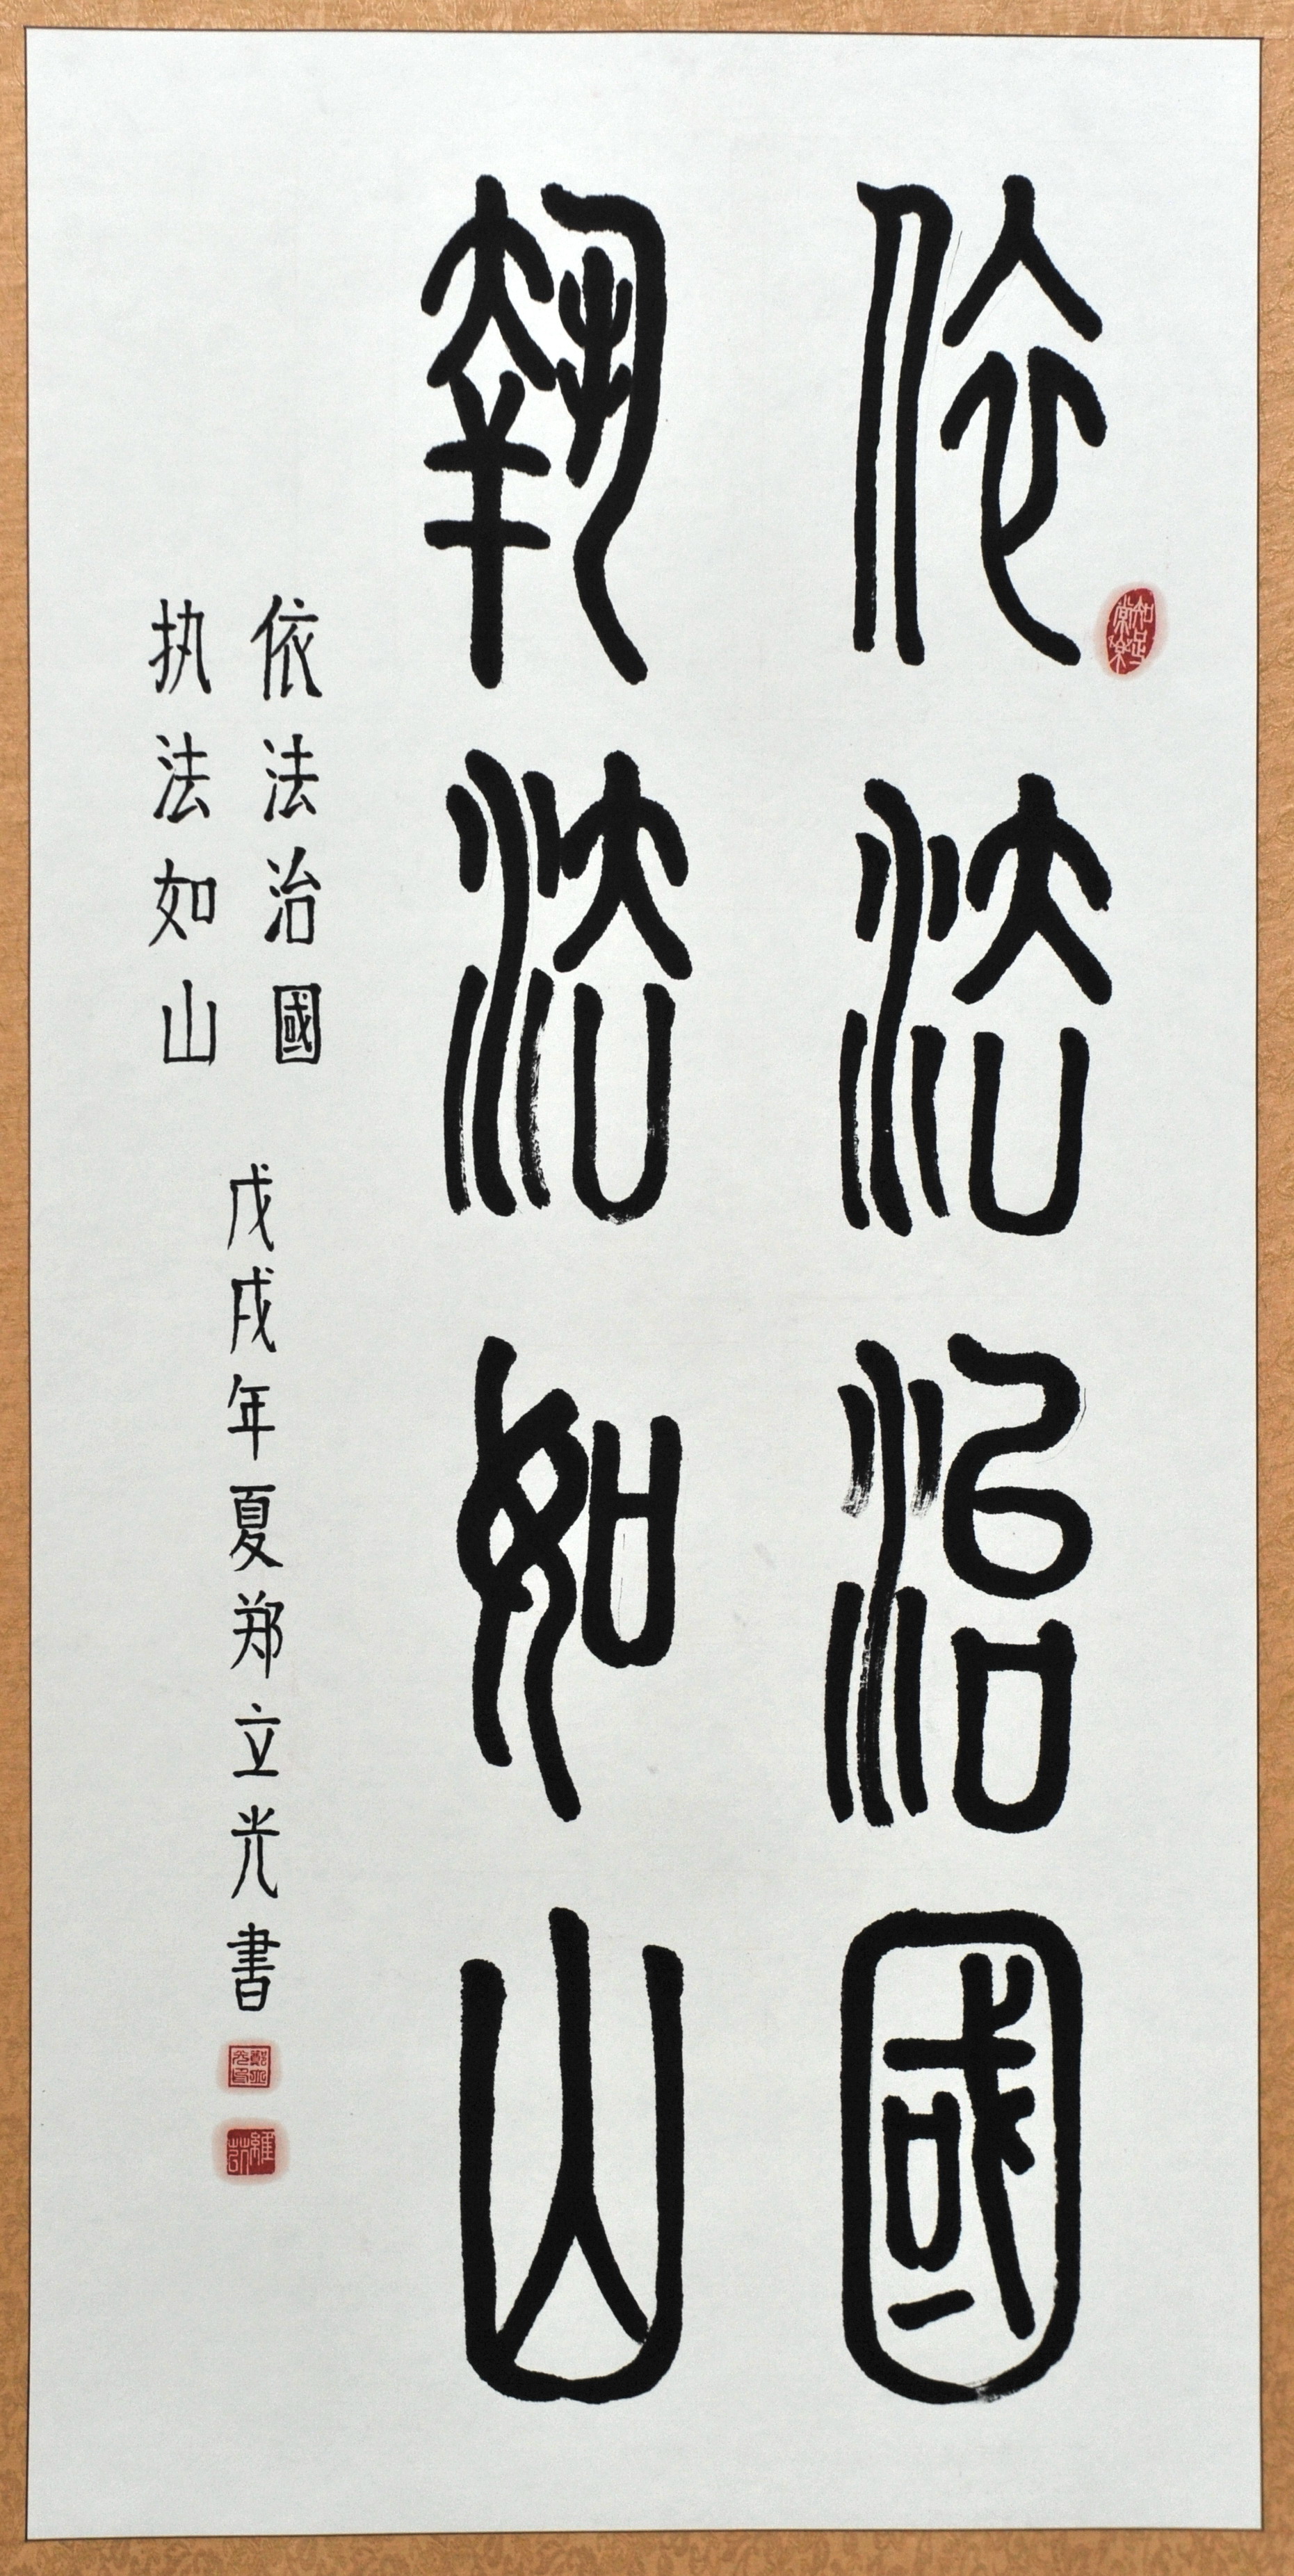 依法治國
執法如山
知足常樂
依法治國
执法如山
戊戌年夏郑立光書